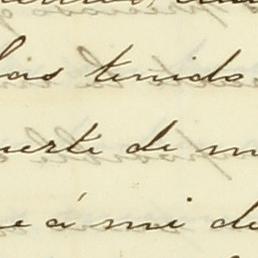 has tenido
uerte de m
e á mi de